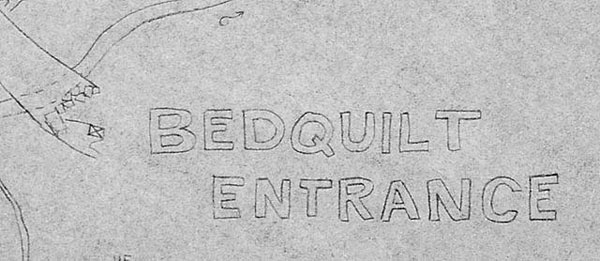 BEDQUILT
ENTRANCE